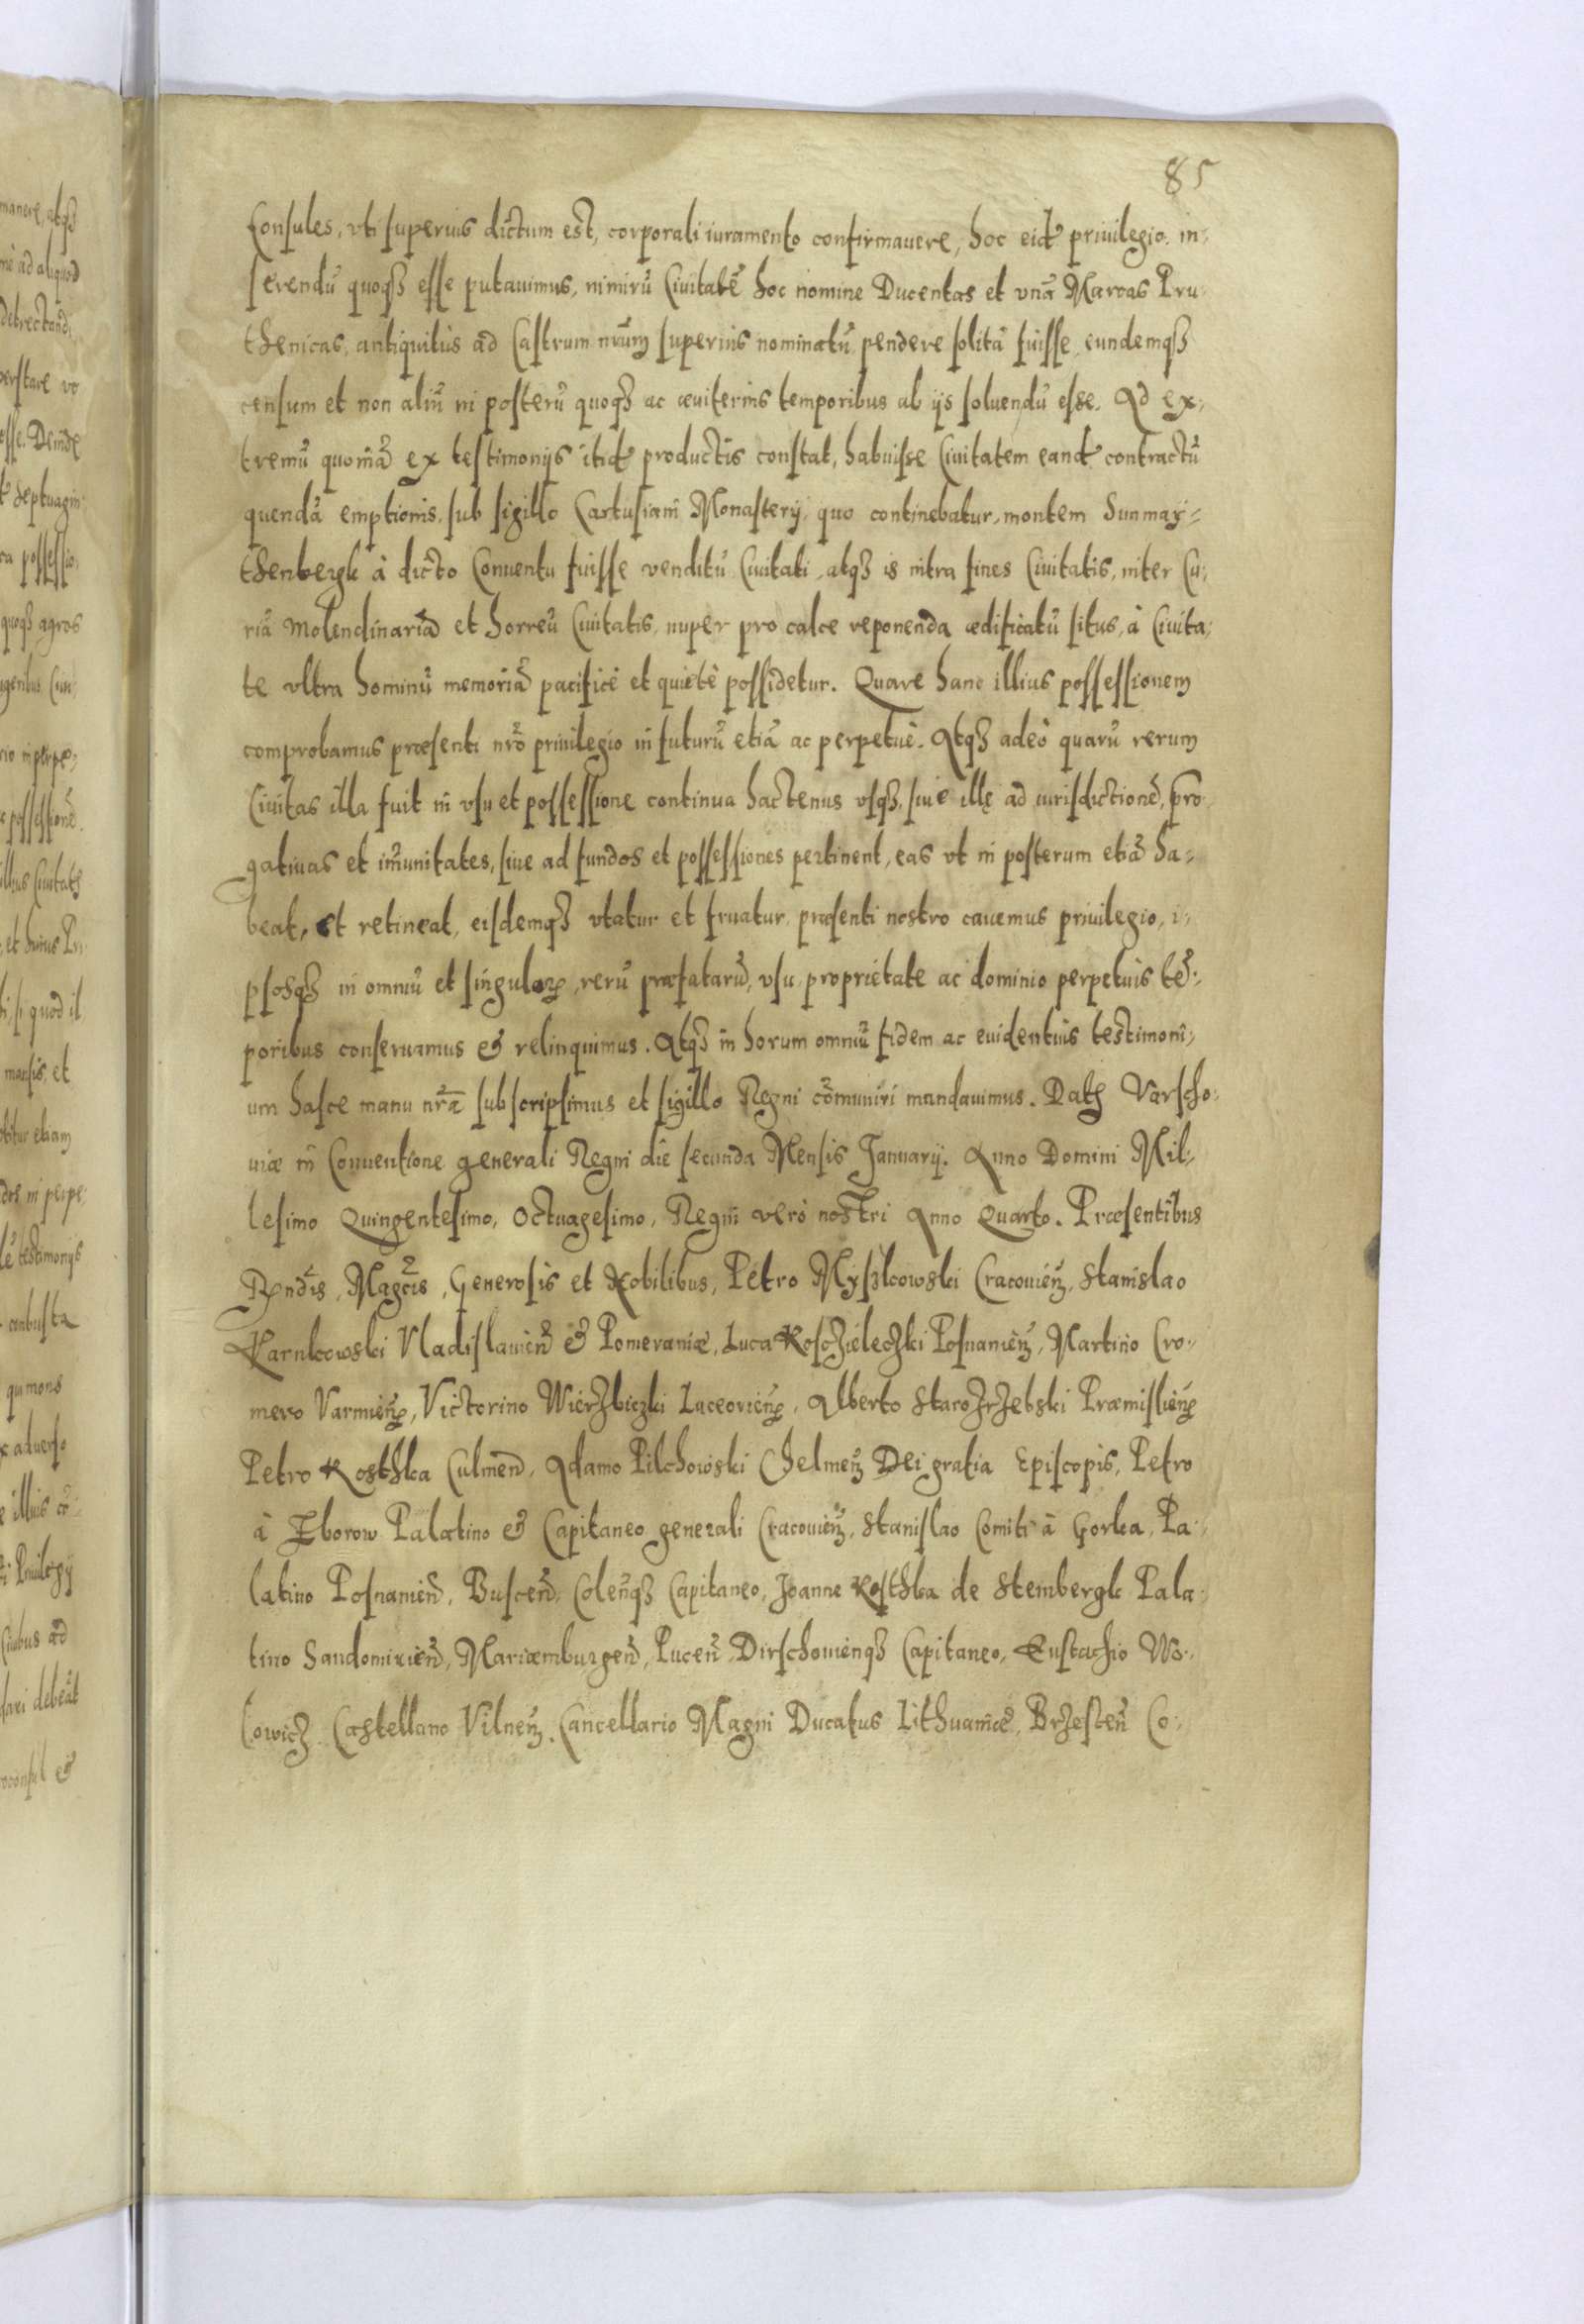 85
Consules, vti superius dictum est, corporali iuramento confirmauere, hoc eid̃ priuilegio, in-
serendũ quoqȝ esse putauimus, nimirũ Ciuitatẽ hoc nomine Ducentas et vnã Marcas Pru-
thenicas, antiquitùs ad Castrum nr̃um superius nominatũ pendere solitã fuisse, eundemqȝ
censum et non aliũ in posterũ quoqȝ ac æuiternis temporibus ab ijs soluendũ esse. Ad ex-
tremũ quoniã ex testimonijs itid̃ productis constat, habuisse Ciuitatem eand̃ contractũ
quendã emptionis, sub sigillo Cartusiani Monasterij, quo continebatur, montem Sunmay-
thenbergk à dicto Conuentu fuisse venditũ Ciuitati, atqȝ is intra fines Ciuitatis, inter Cu-
riã Molendinariã et horreũ Ciuitatis, nuper pro calce reponenda ædificatũ situs, à Ciuita-
te vltra hominũ memoriã pacificè et quietè possidetur. Quare hanc illius possessionem
comprobamus præsenti nr̃o priuilegio in futurũ etiã ac perpetuè. Atqȝ adeò quarũ rerum
Ciuitas illa fuit in vsu et possessione continua hactenus vsqȝ, siue illę ad iurisdictionẽ, prȩro-
gatiuas et im̃unitates, siue ad fundos et possessiones pertinent, eas vt in posterum etiã ha-
beat, et retineat, eisdemqȝ vtatur et fruatur, præsenti nostro cauemus priuilegio, i-
psosqȝ in omniũ et singulorꝝ, rerũ præfatarũ, vsu, proprietate ac dominio perpetuis tẽ-
poribus conseruamus & relinquimus. Atqȝ in horum omniũ fidem ac euidentius testimoni-
um hasce manu nr̃a subscripsimus et sigillo Regni com̃uniri mandauimus. Datȝ Varscho-
uiæ in Conuentione generali Regni die secunda Mensis Januarij. Anno Domini Mil-
lesimo Quingentesimo, Octuagesimo, Regni verò nostri Anno Quarto. Præsentibus
Rendis, Magcis, Generosis et Nobilibus, Petro Myszkowski Cracouieñ, Stanislao
Karnkowski Vladislauieñ & Pomeraniæ, Luca Koschieleczki Posnanieñ, Martino Cro-
mero Varmieñ, Victorino Wierzbiczki Luceorieñ, Alberto Starozrzebski Præmislieñ
Petro Kosthka Culmeñ, Adamo Pilchowski Chelmeñ Dei gratia Episcopis, Petro
à Zborow Palatino & Capitaneo generali Cracouieñ, Stanislao Comiti à Gorka, Pa-
latino Posnanieñ, Busceñ, Coleñqȝ Capitaneo, Joanne Kosthka de Stembergk Pala-
tino Sandomirieñ, Mariæmburgeñ, Puceñ, Dirschouienqȝ Capitaneo, Eustachio Wo-
lowicz Castellano Vilneñ, Cancellario Magni Ducatus Lithuaniæ, Brzesceñ Co-